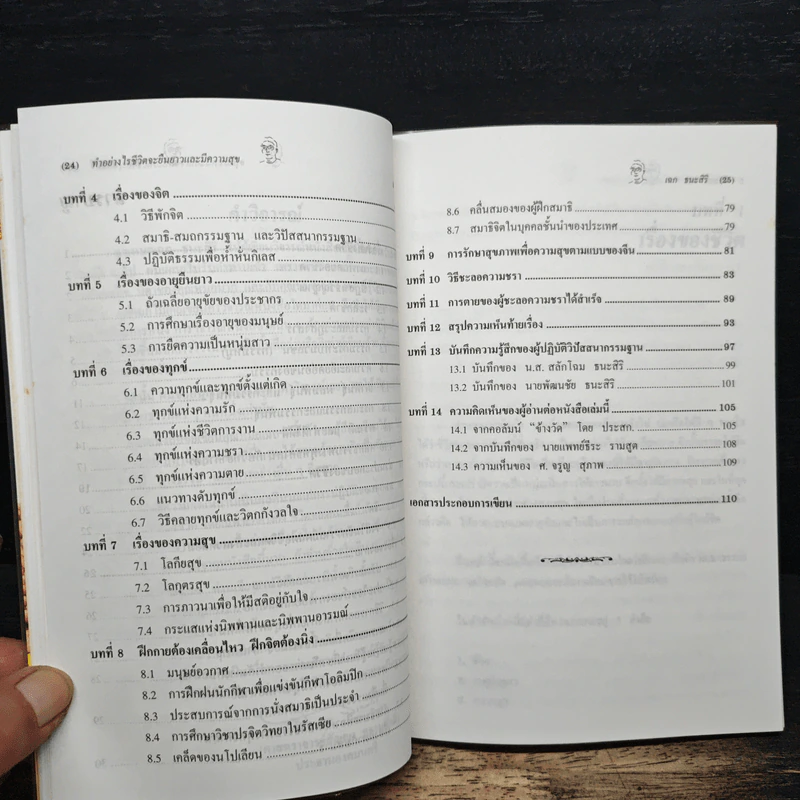 (24) ทำอย่างไรชีวิตจะยืนยาวและมีความสุข
บทที่ 4 เรื่องของจิต
4.1 วิธีพักจิต
4.2 สมาธิ-สมถกรรมฐาน และวิปัสสนากรรมฐาน
4.3 ปฏิบัติธรรมเพื่อห้ำหั่นกิเลส
บทที่ 5 เรื่องของอายุยืนยาว
5.1 ถัวเฉลี่ยอายุขัยของประชากร
5.2 การศึกษาเรื่องอายุของมนุษย์
5.3 การยืดความเป็นหนุ่มสาว
บทที่ 6 เรื่องของทุกข์
6.1 ความทุกข์และทุกข์ตั้งแต่เกิด
6.2 ทุกข์แห่งความรัก
6.3 ทุกข์แห่งชีวิตการงาน
6.4 ทุกข์แห่งความชรา
6.5 ทุกข์แห่งความตาย
6.6 แนวทางดับทุกข์
6.7 วิธีคลายทุกข์และวิตกกังวลใจ
บทที่ 7 เรื่องของความสุข
7.1 โลกียสุข
7.2 โลกุตรสุข
7.3 การภาวนาเพื่อให้มีสติอยู่กับใจ
7.4 กระแสแห่งนิพพานและนิพพานอารมณ์
บทที่ 8 ฝึกกายต้องเคลื่อนไหว ฝึกจิตต้องนิ่ง
8.1 มนุษย์อวกาศ
8.2 การฝึกฝนนักกีฬาเพื่อแข่งขันกีฬาโอลิมปิก
8.3 ประสบการณ์จากการนั่งสมาธิเป็นประจำ
8.4 การศึกษาวิชาปรจิตวิทยาในรัสเซีย
8.5 เคล็ดของนโปเลียน
เจก ธนะสิริ (25)
8.6 คลื่นสมองของผู้ฝึกสมาธิ 79
8.7 สมาธิจิตในบุคคลชั้นนำของประเทศ 79
บทที่ 9 การรักษาสุขภาพเพื่อความสุขตามแบบของจีน 81
บทที่ 10 วิธีชะลอความชรา 83
บทที่ 11 การตายของผู้ชะลอความชราได้สำเร็จ 89
บทที่ 12 สรุปความเห็นท้ายเรื่อง 93
บทที่ 13 บันทึกความรู้สึกของผู้ปฏิบัติวิปัสสนากรรมฐาน 97
13.1 บันทึกของ น.ส. สลักโฉม ธนะสิริ 99
13.2 บันทึกของ นายพัฒนชัย ธนะสิริ 101
บทที่ 14 ความคิดเห็นของผู้อ่านต่อหนังสือเล่มนี้ 105
14.1 จากคอลัมน์ "ข้างวัด" โดย ประสก. 105
14.2 จากบันทึกของ นายแพทย์ธีระ รามสูต 108
14.3 ความเห็นของ ศ. จรูญ สุภาพ 109
เอกสารประกอบการเขียน 110